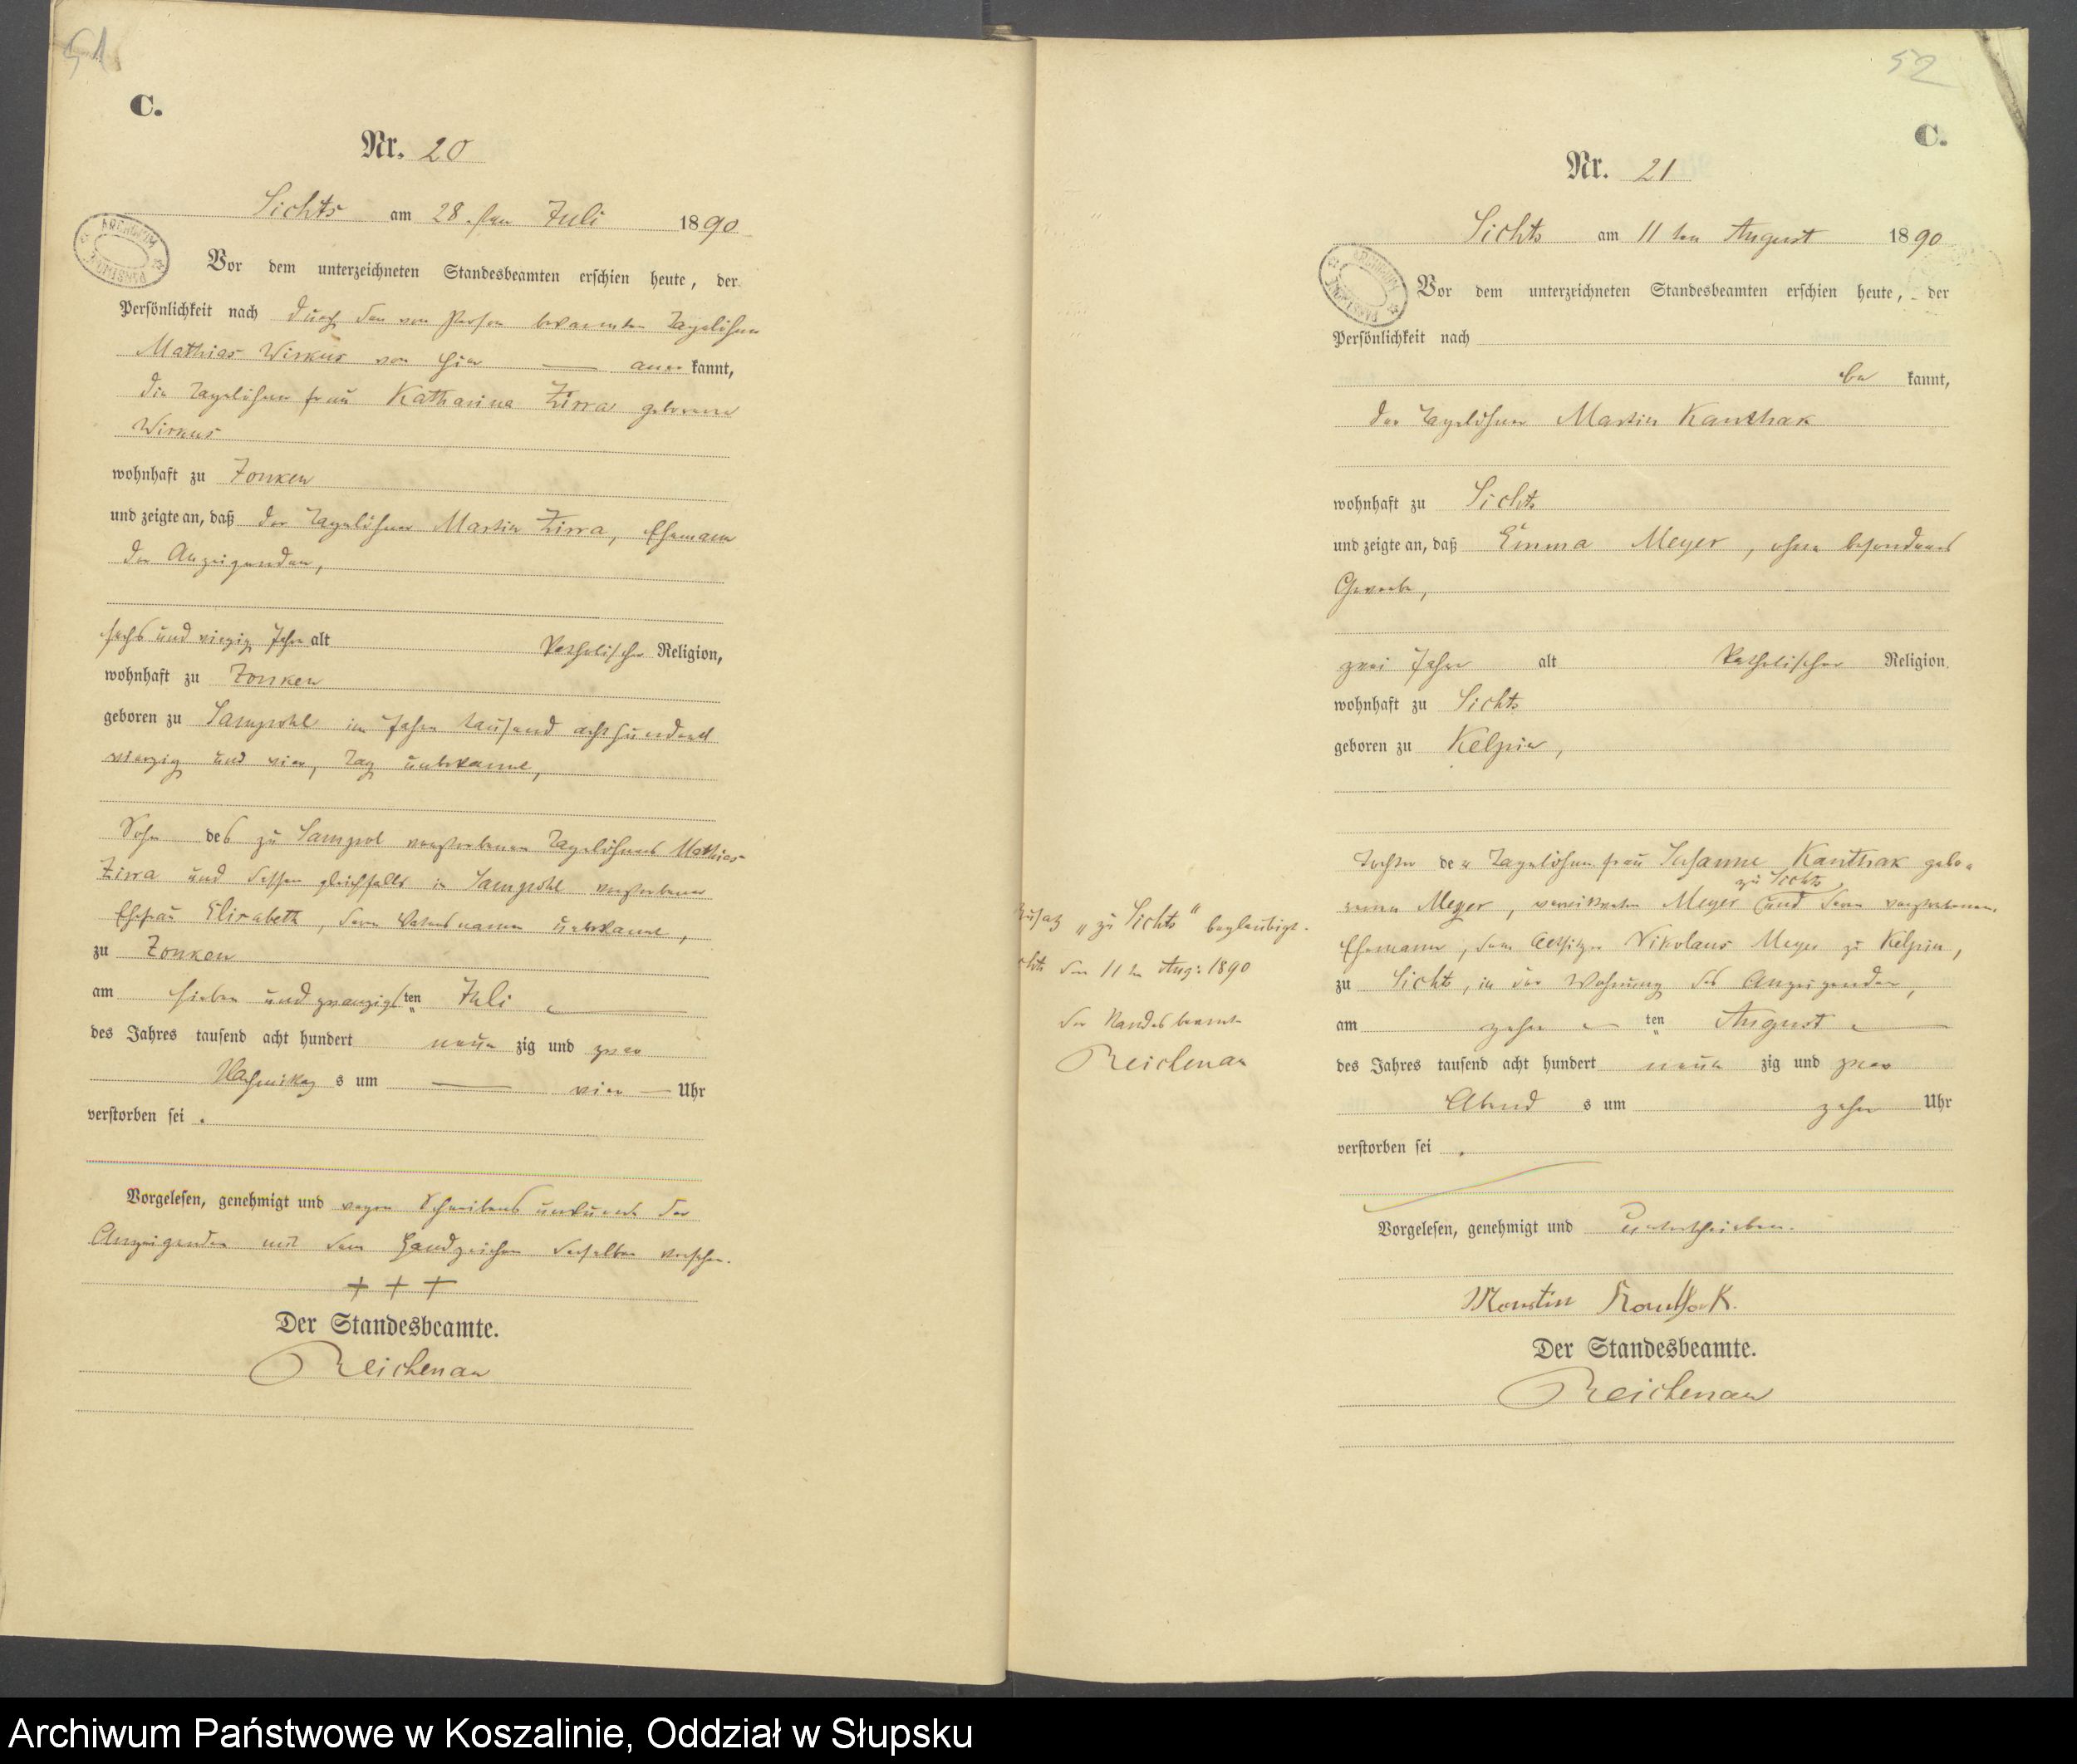 51
C.
Nr. 20
Sichts am 28. ten Juli 1890
ARCHIWUM PAŃSTWOWE
Vor dem unterzeichneten Standesbeamten erschien heute, der
Persönlichkeit nach durch den von Person bekannten Tagelöhner
Mathias Wirkus von hier — aner kannt,
die Tagelöhner frau Katharina Zirra geborene
Wirkus
wohnhaft zu Zonken
und zeigte an, daß der Tagelöhner Martin Zirra, Ehemann
der Anzeigenden,
sechs und vierzig Jahr alt katholischer Religion,
wohnhaft zu Zonken
geboren zu Sampohl im Jahre tausend achthundert
vierzig und vier, Tag unbekannt,
Sohn des zu Sampol verstorbenen Tagelöhners Mathias
Zirra und dessen gleichfalls in Sampohl verstorbener
Ehefrau Elisabeth, deren Vatersname unbekannt,
zu Zonken
am sieben und zwanzigsten Juli —
des Jahres tausend acht hundert neun zig und zwar
Nachmittag s um — vier — Uhr
verstorben sei .
Vorgelesen, genehmigt und wegen Schreibensunkunde der
Anzeigenden mit dem Handzeichen derselben versehen.
+ + +
Der Standesbeamte.
Reichenau
52
C.
Nr. 21
Sichts am 11 ten August 1890
ARCHIWUM PAŃSTWOWE
Vor dem unterzeichneten Standesbeamten erschien heute, der
Persönlichkeit nach
be kannt,
der Tagelöhner Martin Kanthak
wohnhaft zu Sichts
und zeigte an, daß Emma Meyer, ohne besonderes
Gewerbe,
zwei Jahr alt katholischer Religion,
wohnhaft zu Sichts
geboren zu Kelpin,
Tochter der Tagelöhner frau Susanne Kanthak gebo-
zu Sichts
renen Meyer, verwittwete Meyer und deren verstorbenen
Ehemann, dem Altsitzer Nikolaus Meyer zu Kelpin,
zu Sicht, in der Wohnung des Anzeigenden,
am zehn — ten August —
des Jahres tausend acht hundert neun zig und zwar
Abend s um zehn Uhr
verstorben sei .
Vorgelesen, genehmigt und unterschrieben.
Martin Kanthak.
Der Standesbeamte.
Reichenau
Zusatz „zu Sichts" beglaubigt.
den 11 ten Aug: 1890
Der Standesbeamte
Reichenau
Archiwum Państwowe w Koszalinie, Oddział w Słupsku